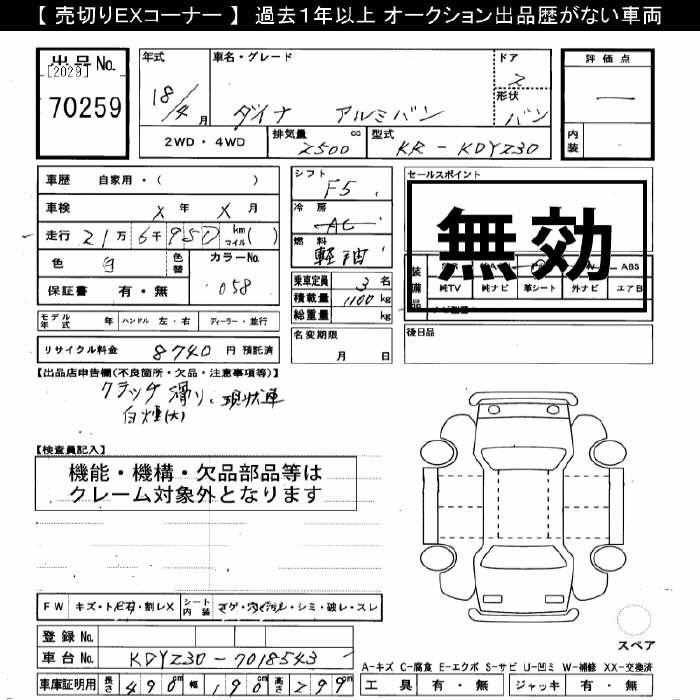 【 売切りEXコーナー 】 過去1年以上 オークション出品歴がない車両
出品No.
[2029]
70259
年式
18/4月
車名・グレード
ダイナ アルミバン
ドア
2
形状
バン
評価点
内装
2WD・4WD
排気量 cc
2500
型式
KR-KDYZ30
車歴 自家用・( )
車検 X年 X月
走行 21万6千950 km マイル( )
色 白
色替
カラーNo.
058
保証書 有・無
モデル年式 年 ハンドル 左・右 ディーラー・並行
リサイクル料金 8740 円 預託済
シフト
F5
冷房
AC
燃料
軽油
乗車定員 3名
積載量 1100kg
総重量 kg
名変期限
月 日
セールスポイント
無効
装備品
ABS
純TV 純ナビ 革シート 外ナビ エアB
後日品
【出品店申告欄(不良箇所・欠品・注意事項等)】
クラッチ滑り、現状車
白煙(大)
【検査員記入】
機能・機構・欠品部品等は
クレーム対象外となります
FW キズ・ト石・割レX シート内装 コゲ・穴・シミ・破レ・スレ
登録No.
車台No. KDYZ30-7018543
車庫証明用 長さ 490cm 幅 190cm 高さ 299
スペア
A-キズ C-腐食 E-エクボ S-サビ U-凹ミ W-補修 XX-交換済
工具 有・無 ジャッキ 有・無